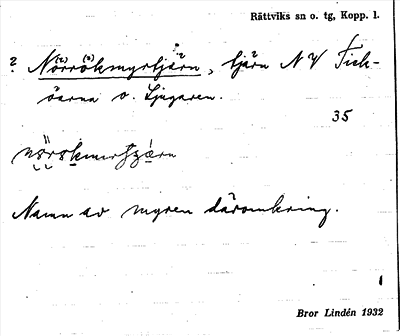 Rättviks sn o. tg, Kopp. l.
? Nörrökmyrtjärn, tjärn NV Fisk-
öarna o. Ljugaren.
35
Namn av myren däromkring.
Bror Lindén 1932